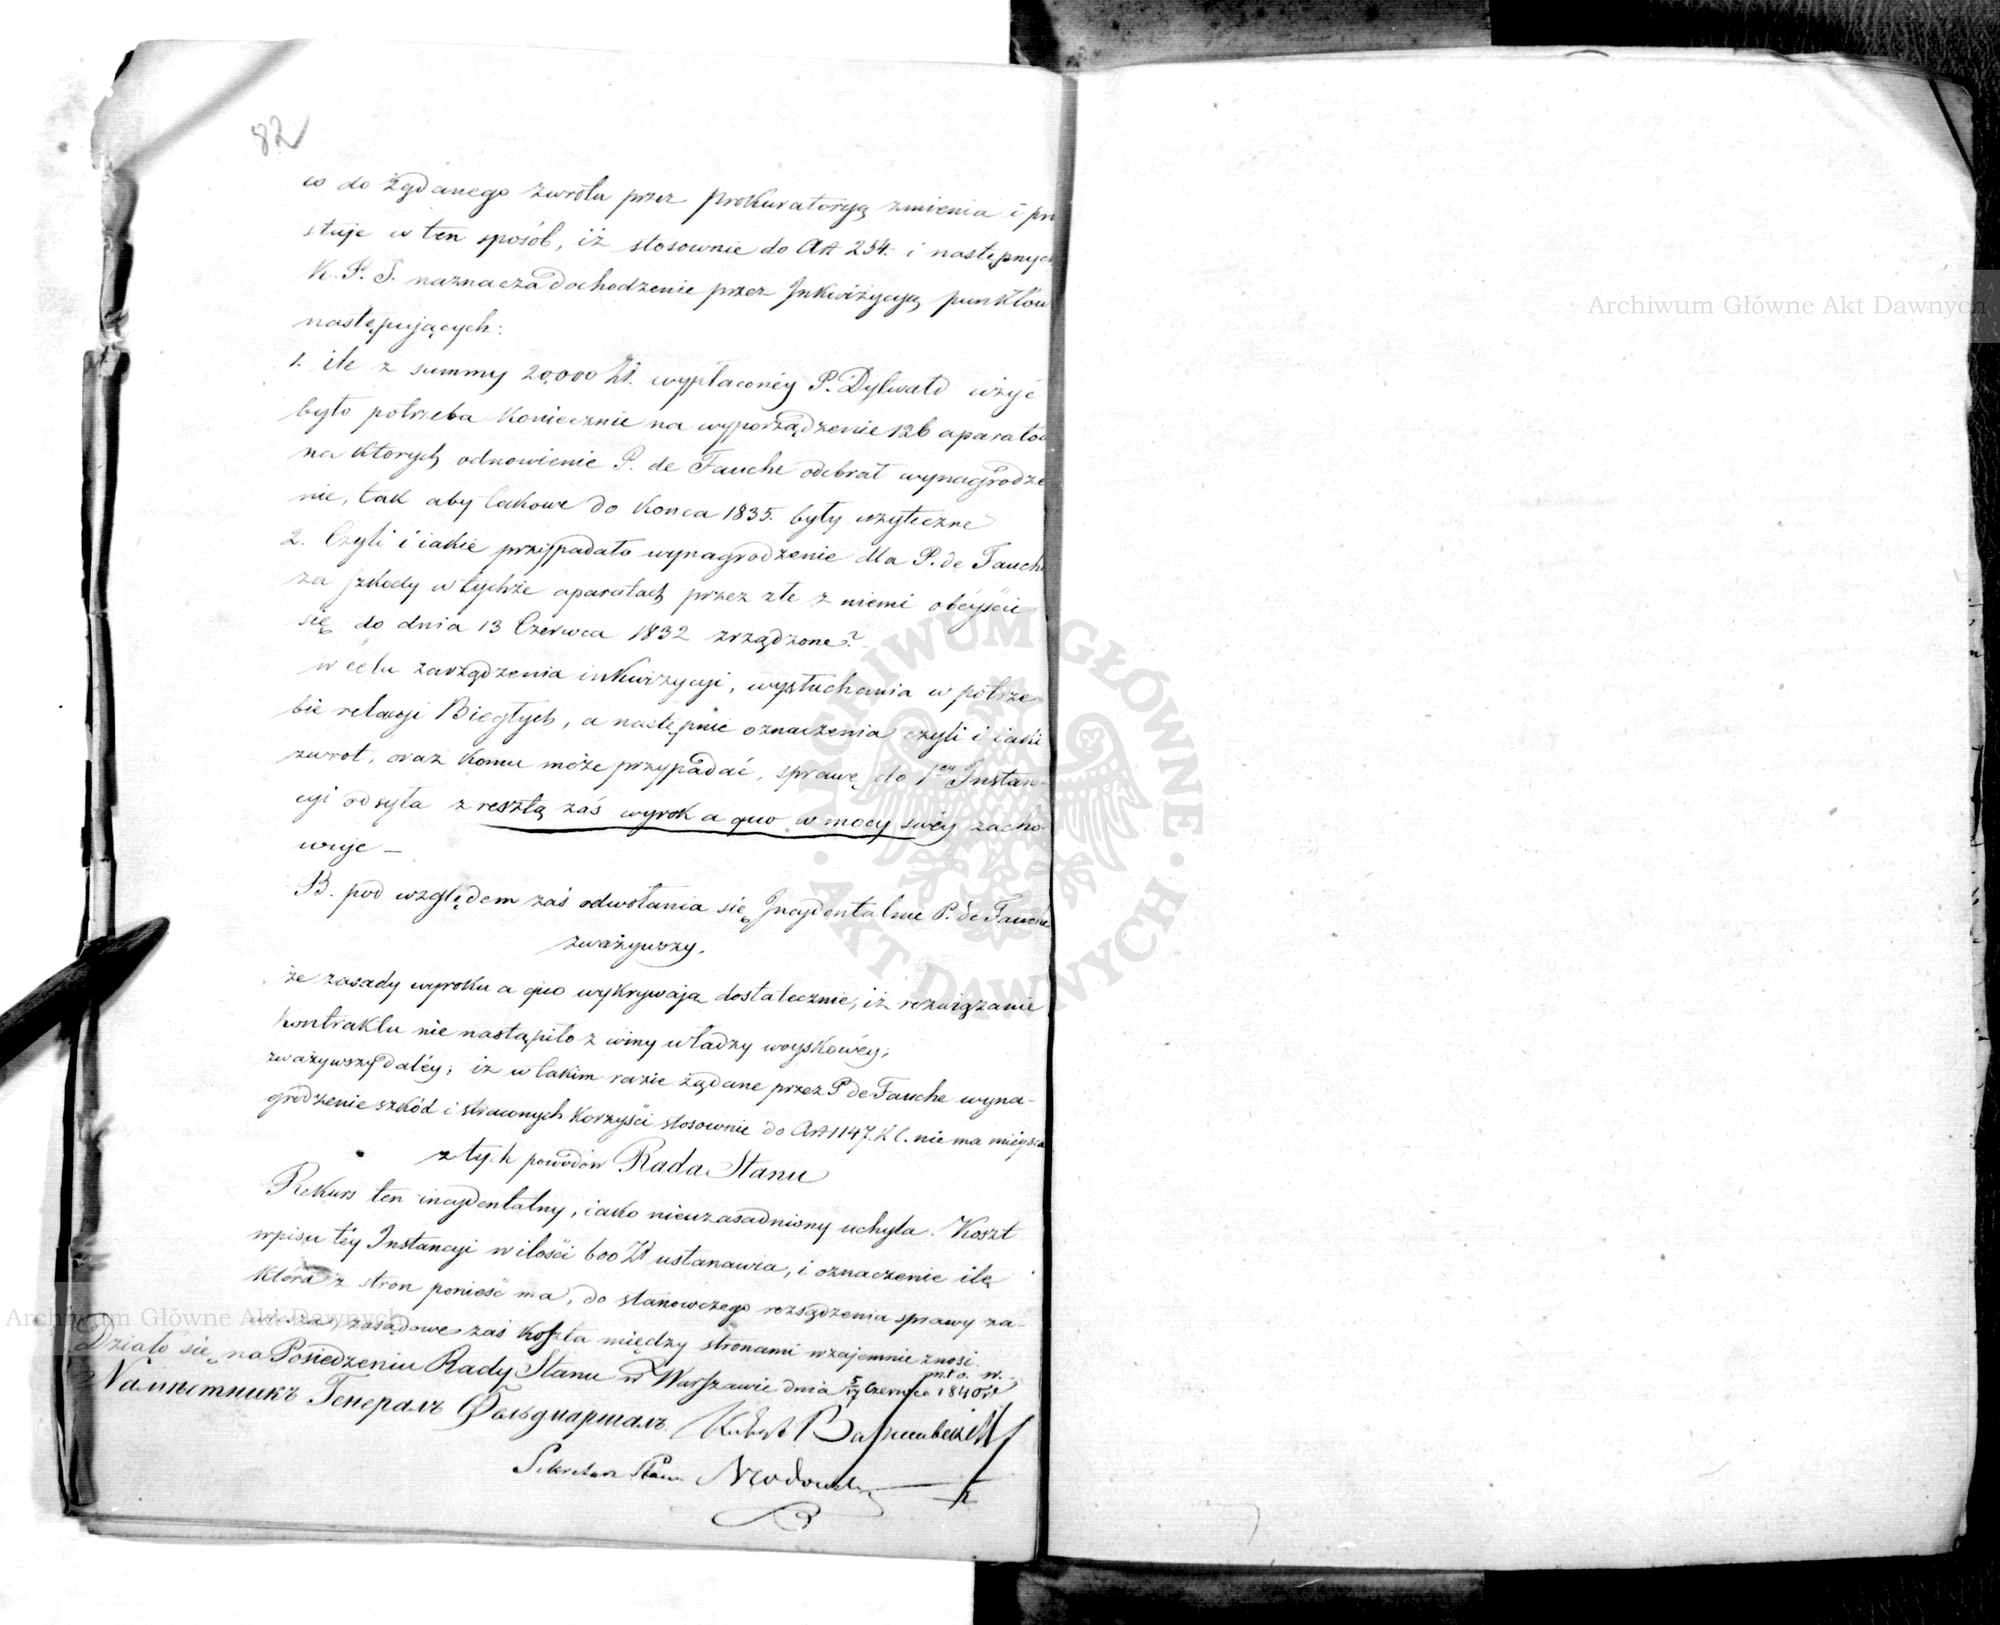 82
w do żądanego zwrotu przez prokuratoryą zmienia i pro
stuje w ten sposób, iż stosownie do Art 254. i następnych
K. P. S. naznacza dochodzenie przez Inkwizycyą punktów
następujących:
1. ile z summy 20,000 Zł. wypłaconéy P. Dylwald użyć
było potrzeba koniecznie na wyporządzenie 126 aparatów
na których odnowienie P. de Fauche odebrał wynagrodze
nie, tak aby takowe do końca 1835. były użyteczne
2. Czyli i iakie przypadało wynagrodzenie dla P. de Fauche
za szkody w tychże aparatach przez złe z niemi obeyście
się do dnia 13 Czerwca 1832 zrządzone?
w celu zarządzenia inkwizycyi, wysłuchania w potrze
bie relacyi Biegłych, a następnie oznaczenia czyli i iaki
zwrot, oraz komu może przypadać, sprawę do 1ey Instan-
cyi odsyła z resztą zaś wyrok a quo w mocy swéy zacho-
wuje —
B. pod względem zaś odwołania się Incydentalnie P. de Fauche
zważywszy,
że zasady wyroku a quo wykrywaja dostatecznie, iż rozwiązanie
kontraktu nie nastąpiło z winy władzy woyskowéy;
zważywszy daléy; iż w takim razie żądane przez P de Fauche wyna-
grodzenie szkód i straconych korzyści stosownie do Art 1147. K C. nie ma mieysca
z tych powodów Rada Stanu
Rekurs ten incydentalny, iako nieuzasadniony uchyla. Koszt
wpisu téy Instancyi w ilości 600 Zł ustanawia, i oznaczenie ile
która z stron ponieść ma, do stanowczego rozsądzenia sprawy za-
wiesza, zasądowe zaś koszta między stronami wzajemnie znosi.
Działo się na Posiedzeniu Rady Stanu w Warszawie dnia 5/17 Czerwca 1840 r.
Намѣстникъ Генералъ Фельдмаршалъ
Sekretarz Stanu
Archiwum Główne Akt Dawnych
Archiwum Główne Akt Dawnych
ARCHIWUM GŁÓWNE · AKT DAWNYCH ·